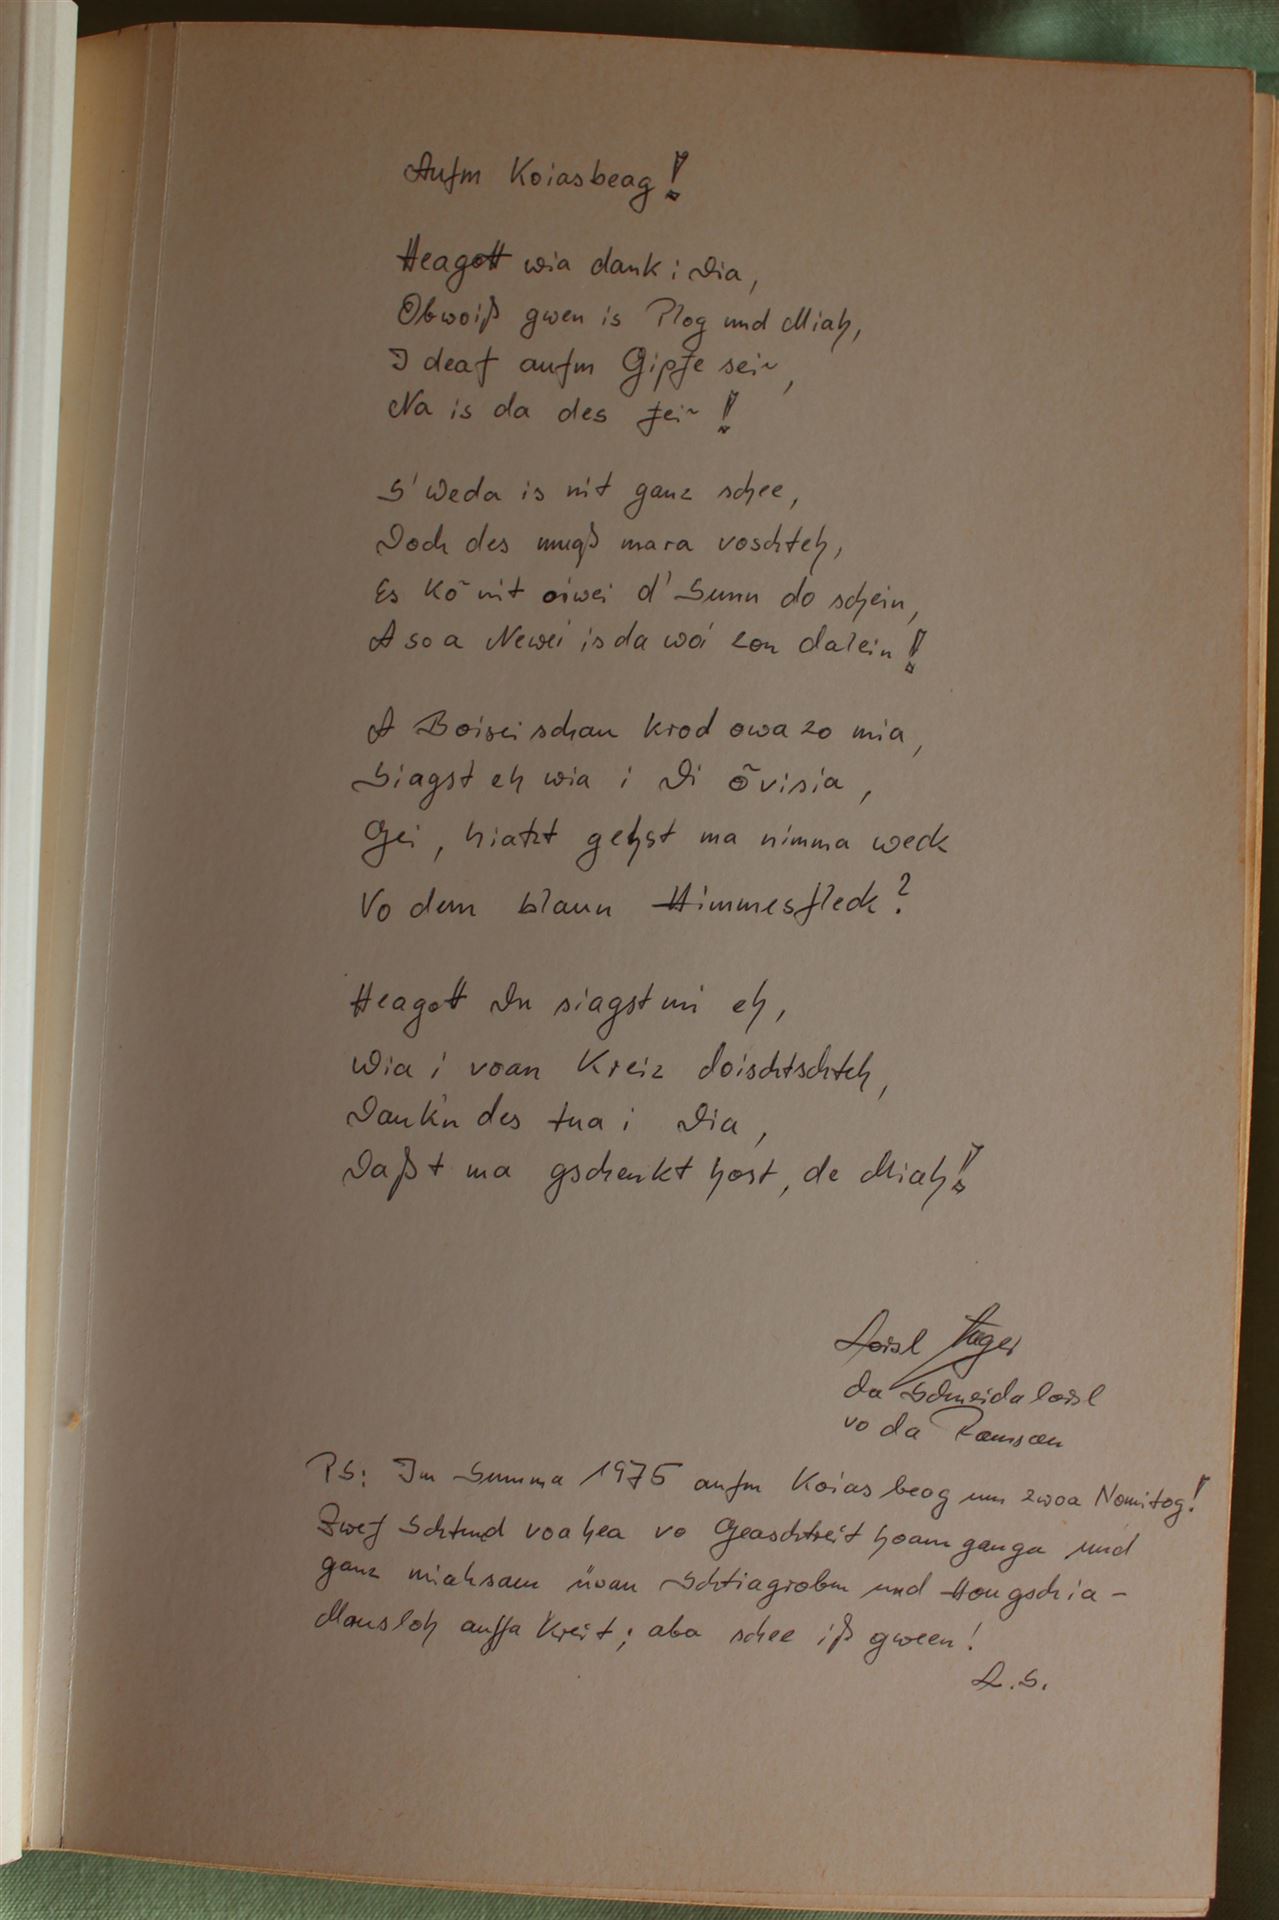 Aufm Koiasbeag!
Heagott wia dank i Dia,
Obwoiß gwen is Plog und Miah,
I deaf aufm Gipfe sei~,
Na is da des fei~!
S'Weda is nit ganz schee,
Doch des muaß mara voschteh,
Es kõ nit oiwei d'Sunn do schein,
A so a Newei is da woi zon dalein!
A Boisei schau krod owa zo mia,
Siagst eh wia i Di õvisia,
Gei, hiatzt gehst ma nimma weck
Vo dem blaun Himmesfleck?
Heagott Du siagst mi eh,
Wia i voan Kreiz doischtschteh,
Dank'n des tua i Dia,
Daßt ma gschenkt host, de Miah!
Loisl
da Schneidaloisl
vo da Ramsau
PS: Im Summa 1975 aufm Koiasbeag um zwoa Nomitog!
Zwef Schtund voahea vo Geaschtreit hoam ganga und
ganz miahsam üwan Schtiagrobm und Hougschia-
Mausloh auffa kreit; aba schee iß gween!
L.S.